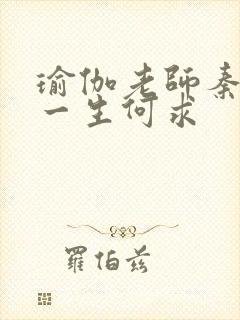 瑜伽老師秦
一生何求
羅伯茲